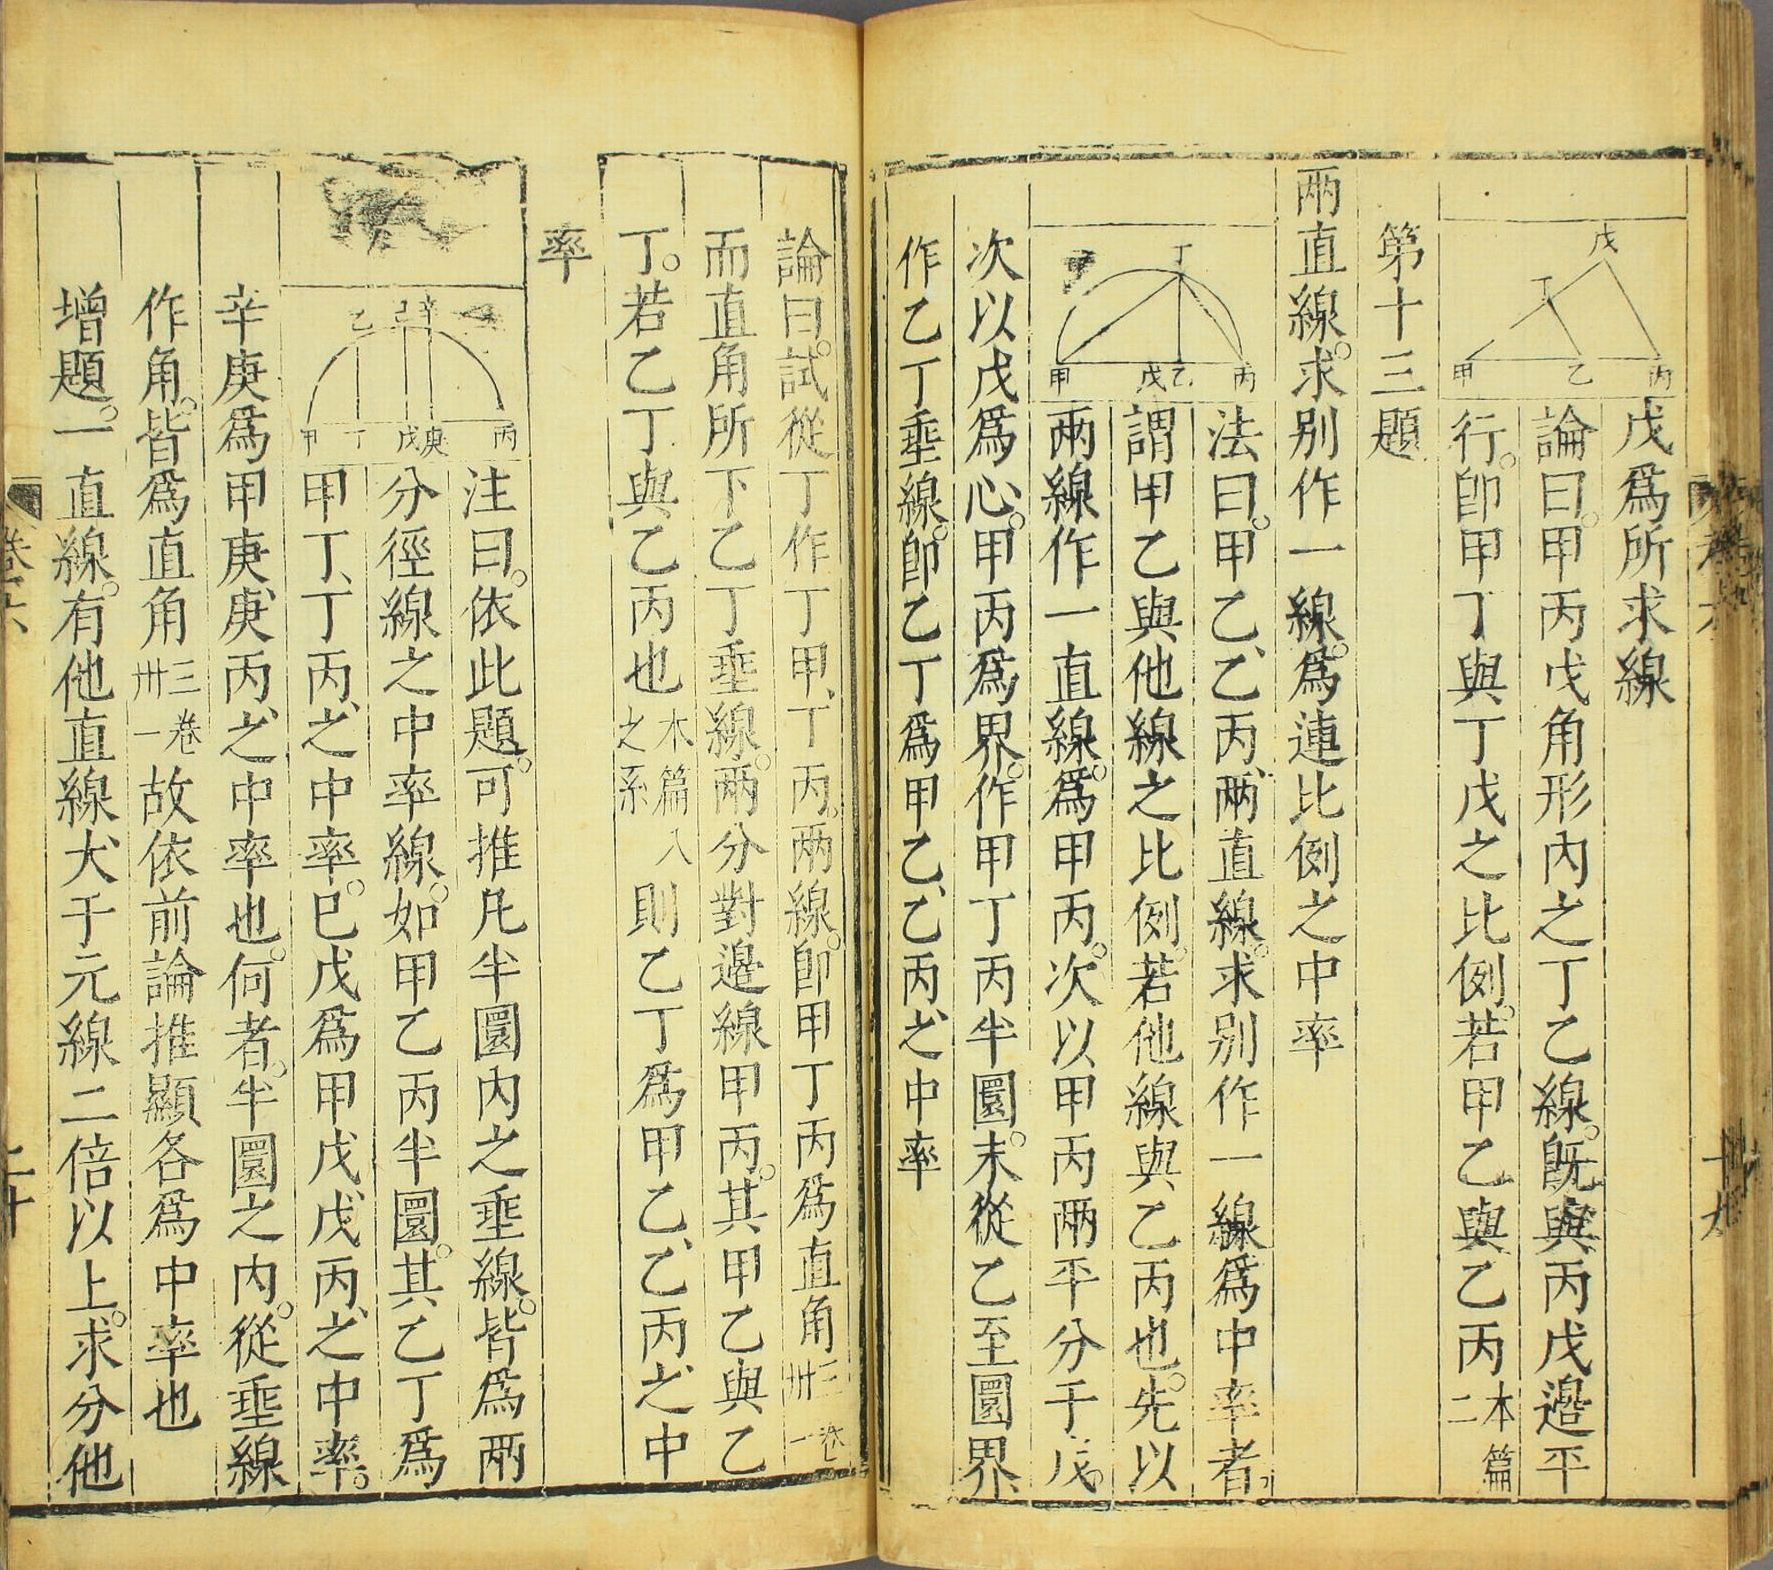 戊爲所求線
論曰。甲丙戊角形內之丁乙線。旣與丙戊邊平
行。卽甲丁與丁戊之比例。若甲乙與乙丙本篇二
第十三題
兩直線。求別作一線。爲連比例之中率
法曰。甲乙、乙丙、兩直線。求別作一線爲中率者。
謂甲乙與他線之比例。若他線與乙丙也。先以
兩線作一直線。爲甲丙。次以甲丙兩平分于戊。
次以戊爲心。甲丙爲界。作甲丁丙半圜。末從乙至圜界
作乙丁垂線。卽乙丁爲甲乙、乙丙、之中率
戊
丁
甲 乙 丙
丁
甲 戊 乙 丙
十九
論曰。試從丁作丁甲、丁丙。兩線。卽甲丁丙爲直角三卷卅一
而直角所下乙丁垂線。兩分對邊線甲丙。其甲乙與乙
丁。若乙丁與乙丙也本篇八之系則乙丁爲甲乙、乙丙、之中
率
注曰。依此題。可推凡半圜內之垂線。皆爲兩
分徑線之中率線。如甲乙丙半圜。其乙丁爲
甲丁、丁丙、之中率。己戊爲甲戊、戊丙、之中率。
辛庚爲甲庚、庚丙、之中率也。何者。半圜之內。從垂線
作角。皆爲直角三卷卅一故依前論推顯各爲中率也
增題。一直線。有他直線、大于元線二倍以上。求分他
乙 己 辛
甲 丁 戊 庚 丙
卷六
二十